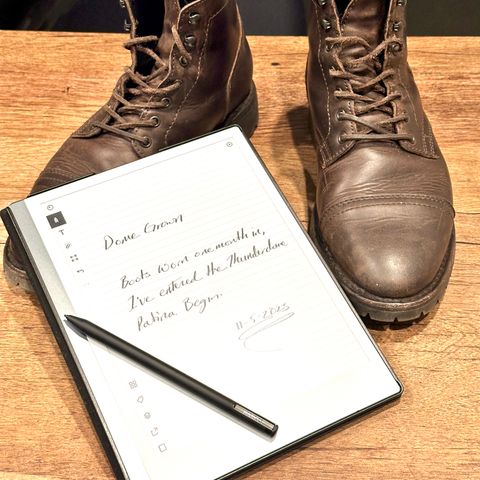 Dome Grown
Boots worn one month in,
I've entered the Thunderdome
Patina Begins.
11.5.2025